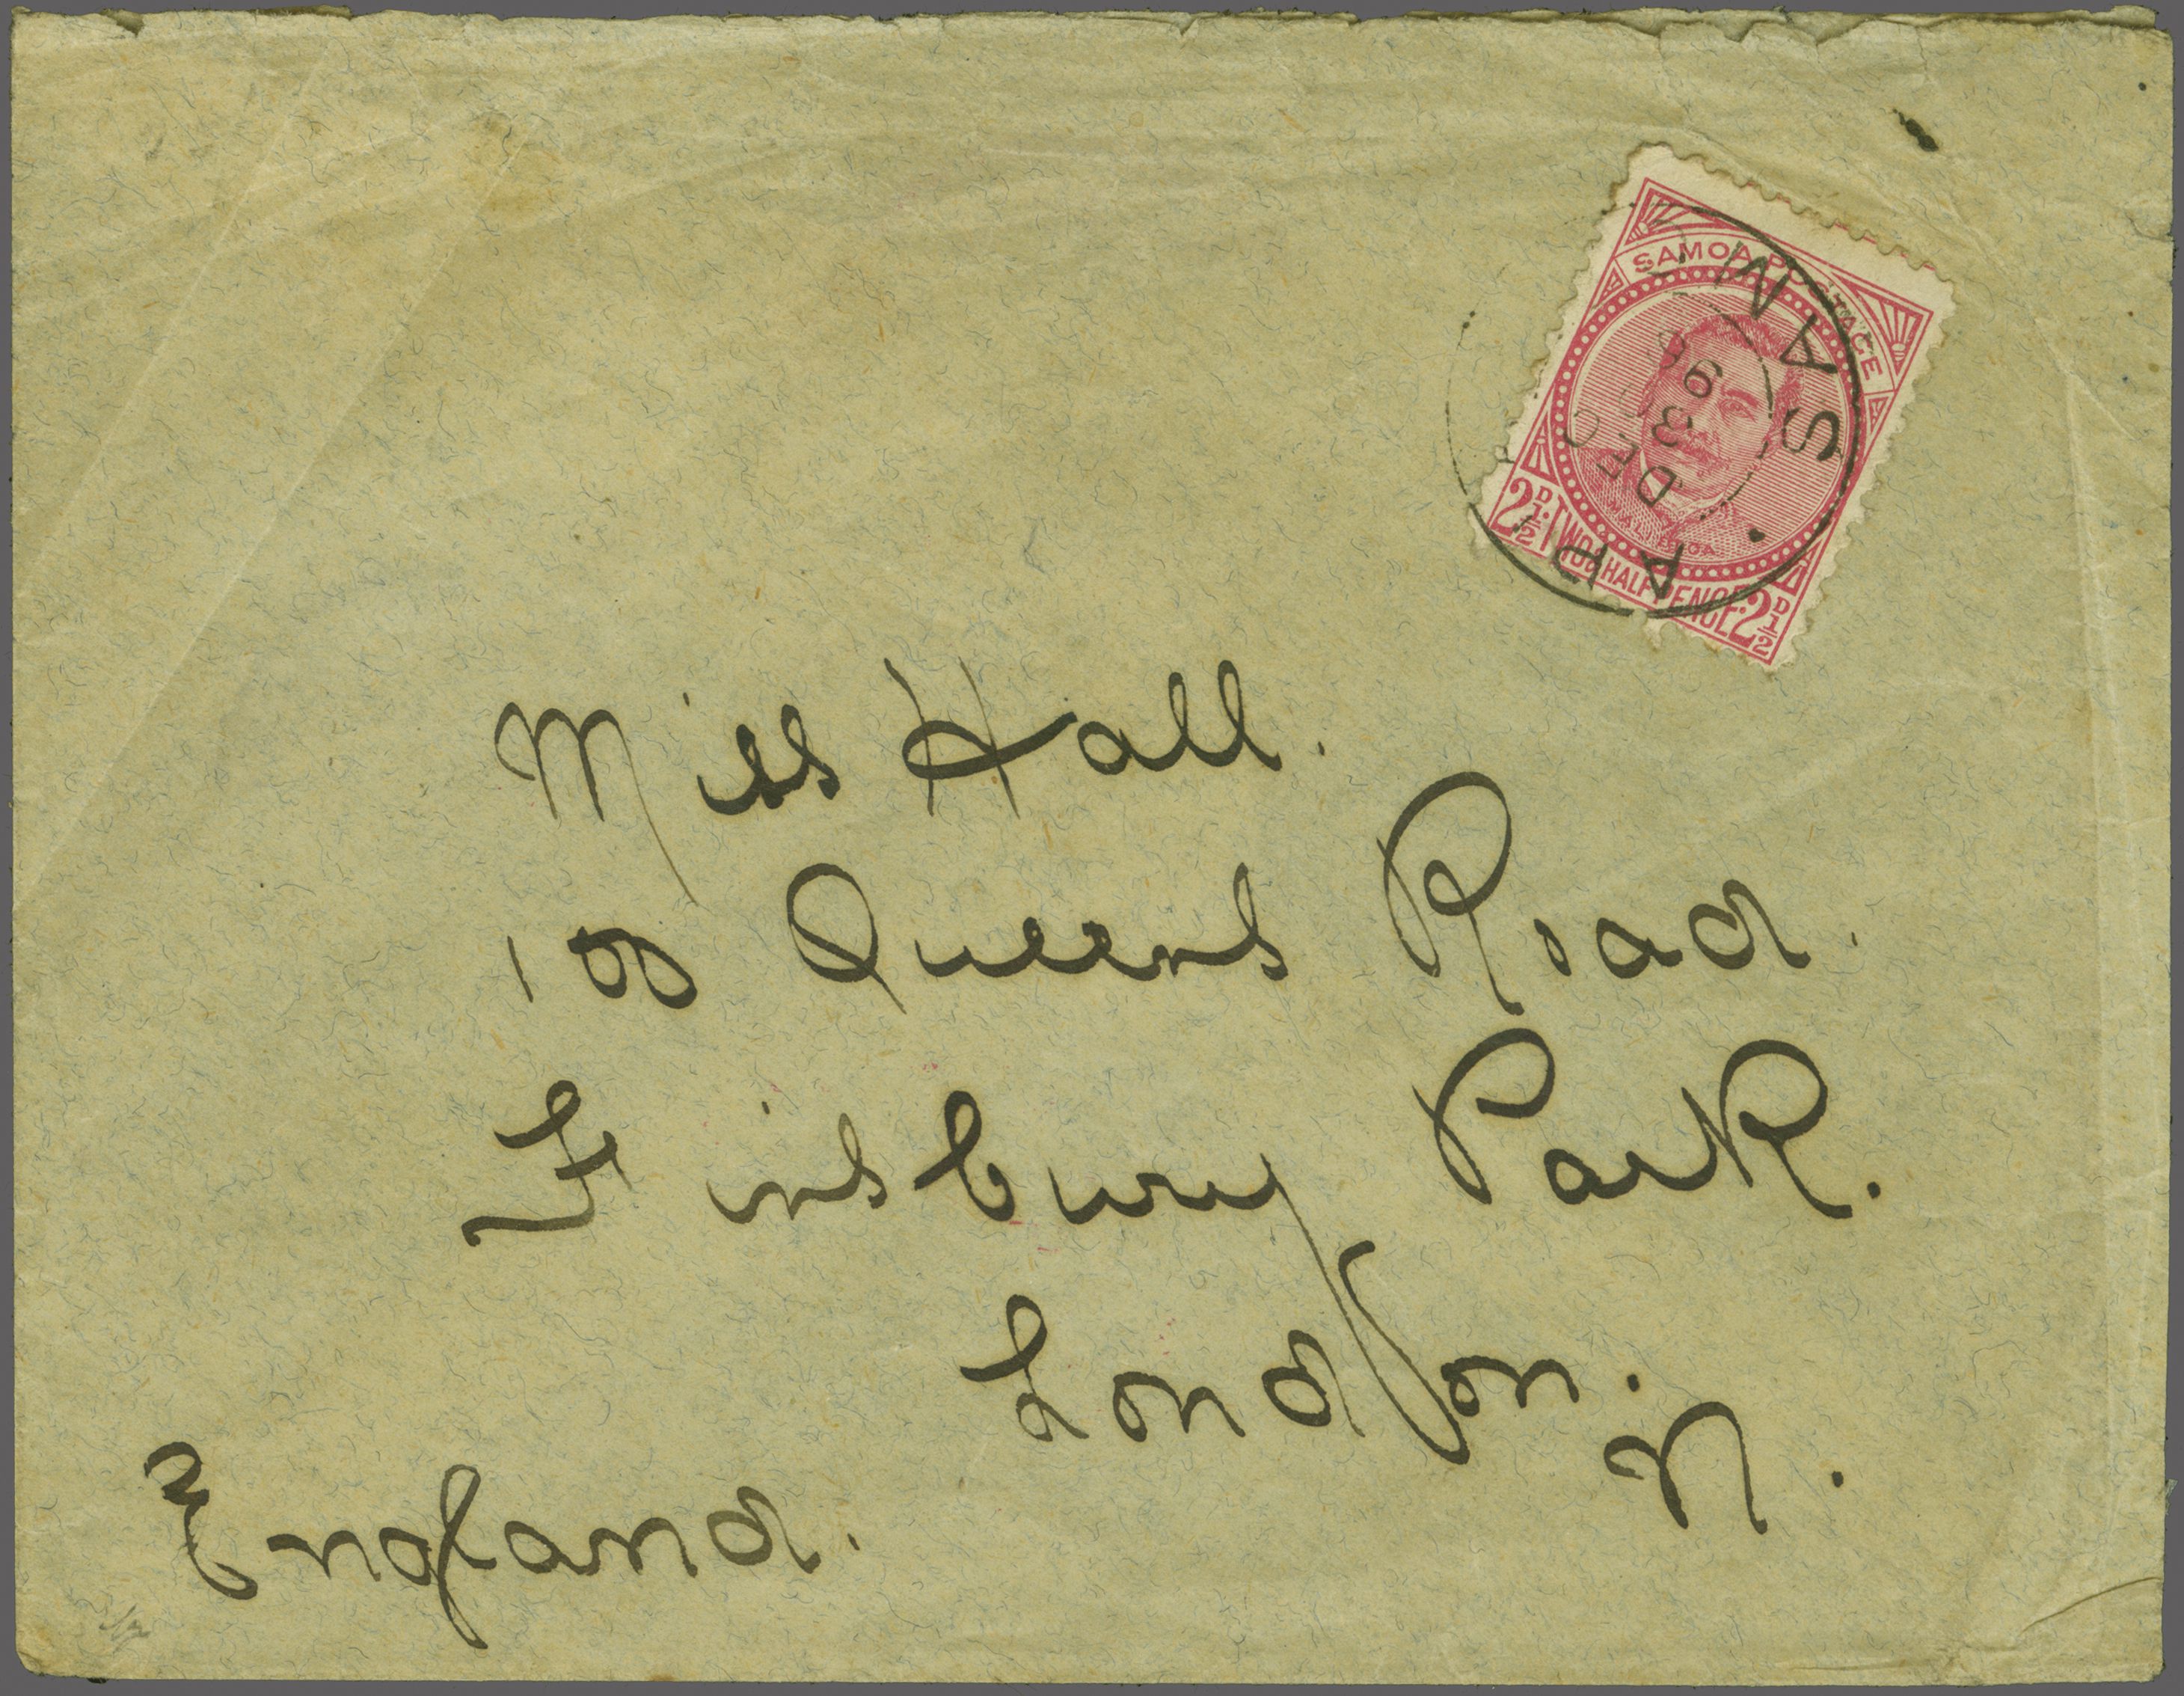 SAMOA POSTAGE
2½D TWO & HALF PENCE 2½D
APIA · SAM
DE
3
96
Miss Hall.
100 Queens Road.
Finsbury Park.
London.
N.
England.